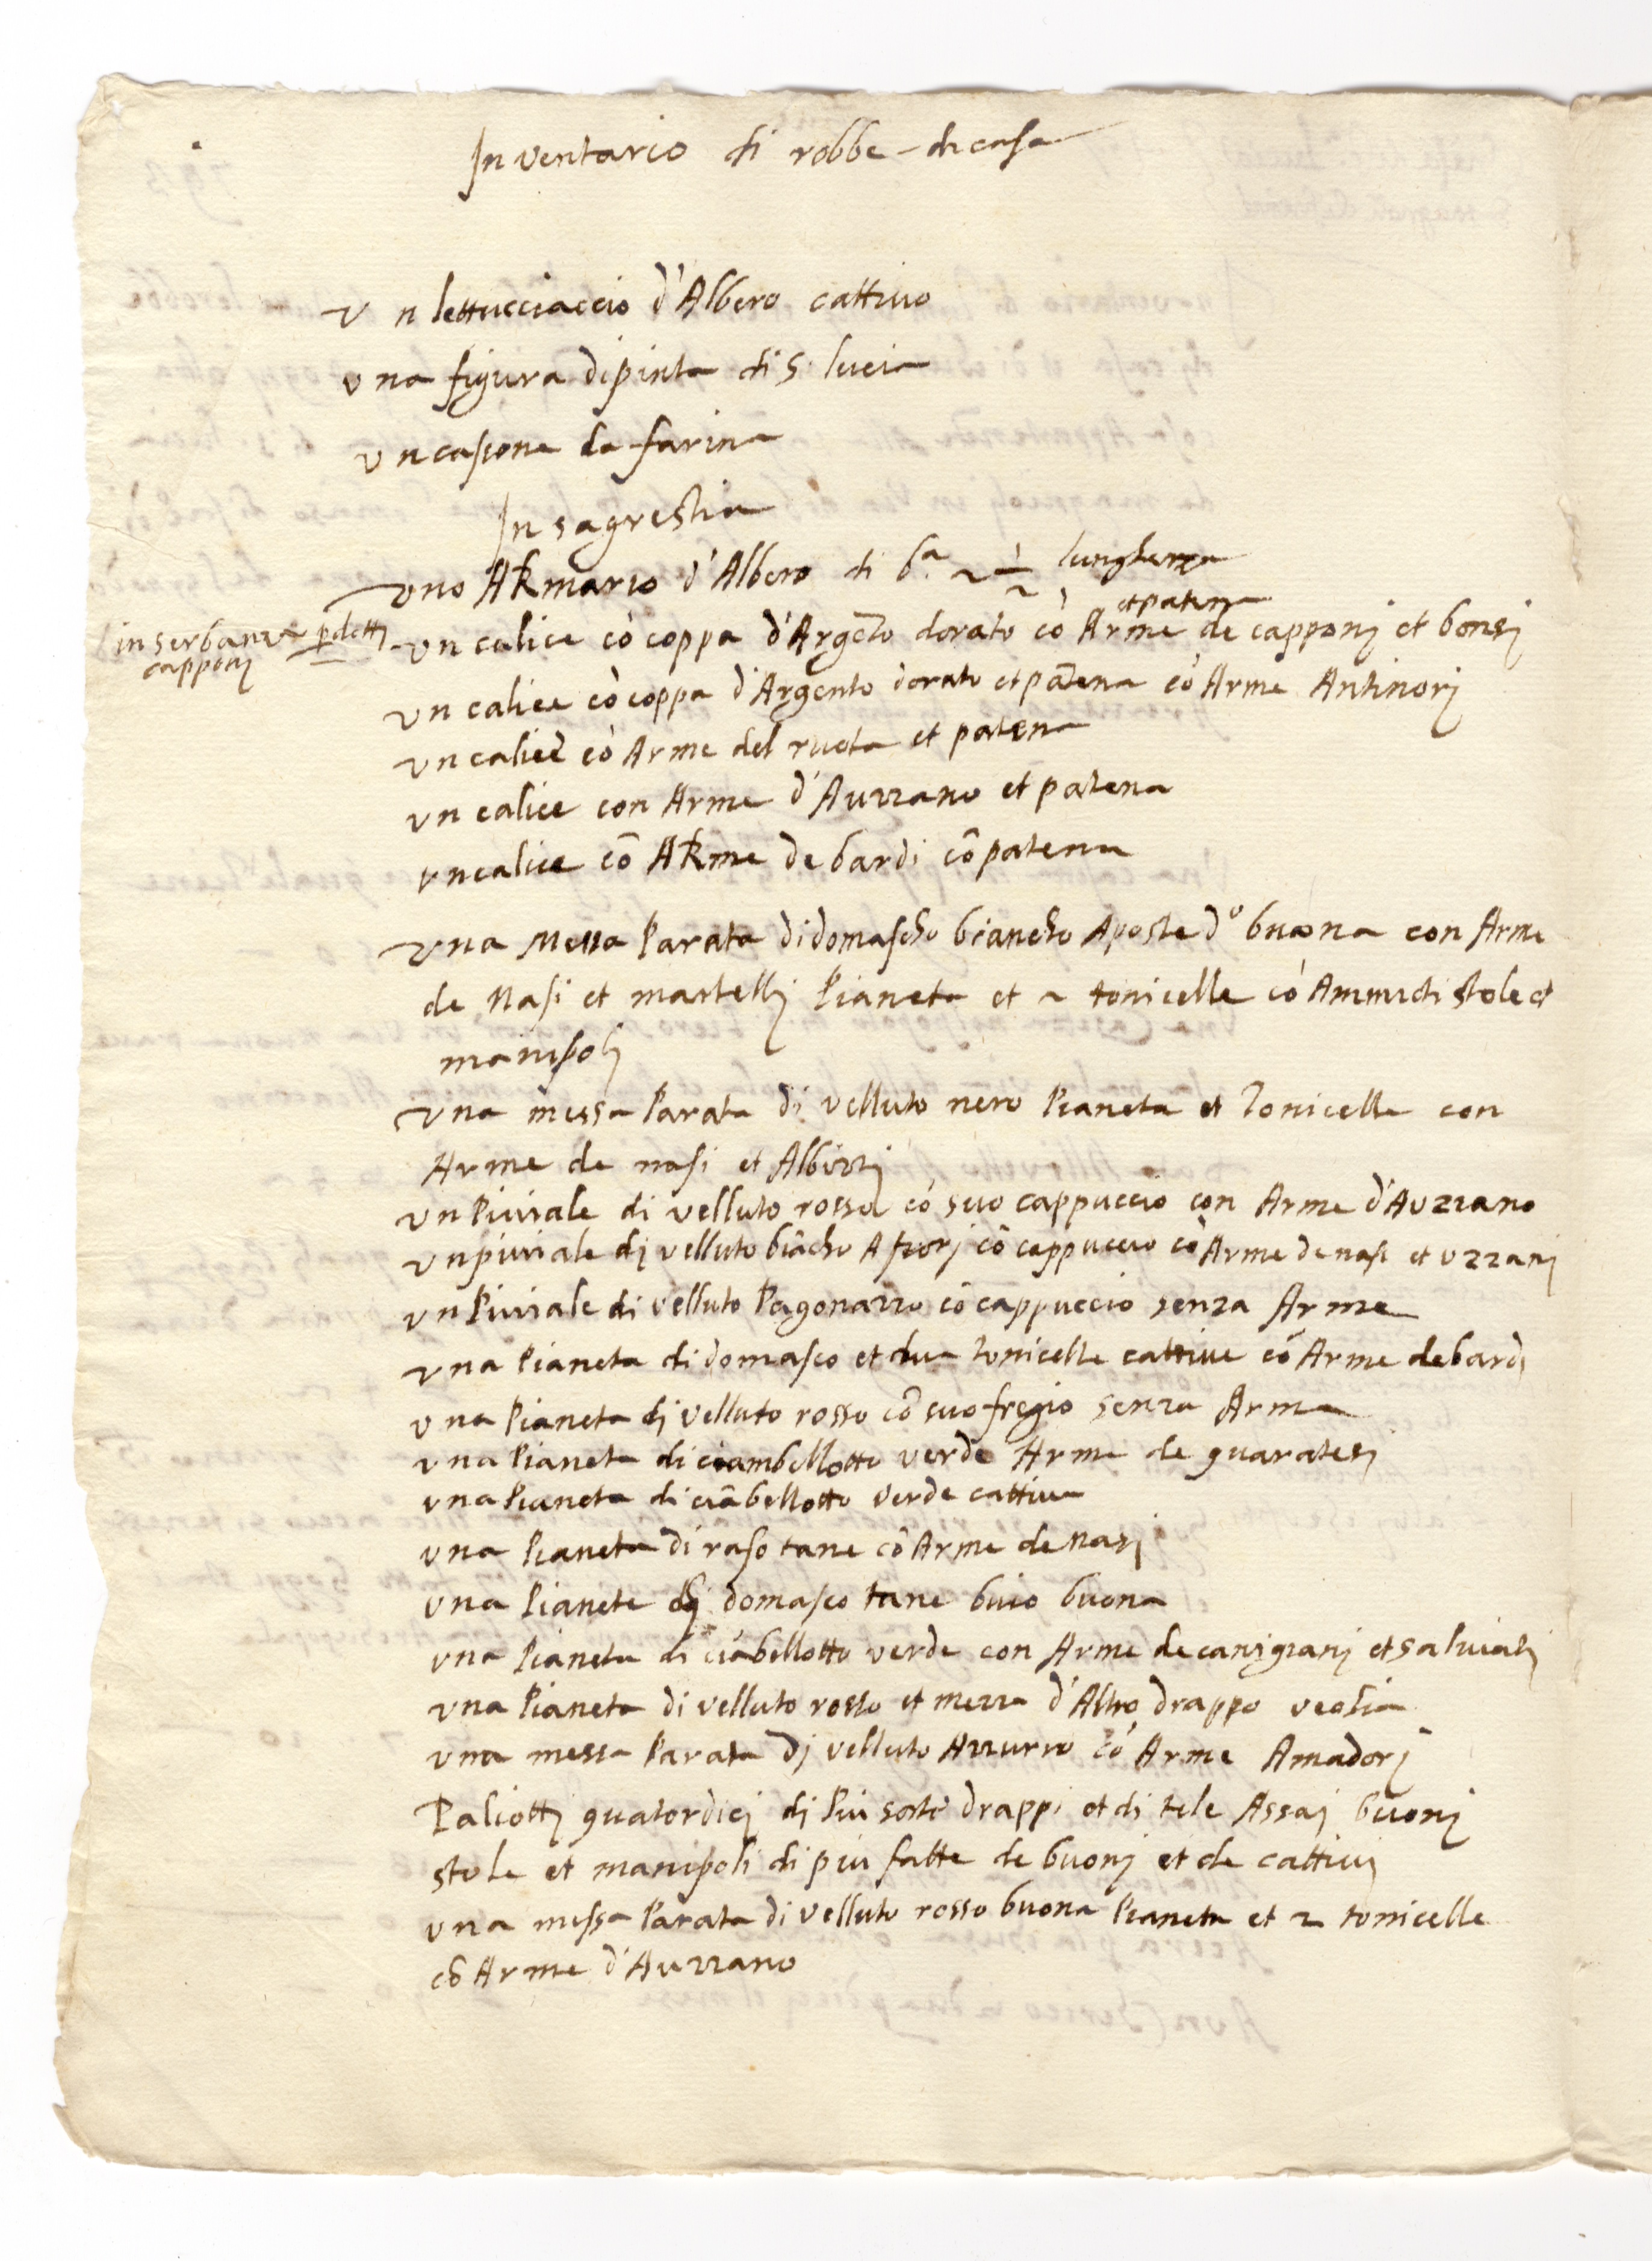 Inventario di robbe di casa
Un lettucciaccio d'Albero cattiuo
una figura dipinta di S. lucia
un cassone da farina
In sagrestia
uno ARmario d'Albero di b.a lungheza
et patena
in serbanza p detti
capponi
un calice cò coppa d'Argeto dorato cò Arme de capponj et bonsj
un calice cò coppa d'Argento dorato et patena cò Arme Antinorj
un calice cò Arme del ruota et patena
un calice con Arme d'Auzzano et patena
un calice cō ARme de bardi cō patena
una Messa Parata di domascho biancho Aposte d.o buona con Arme
de Nasi et martellj Pianeta et 2 tonicelle cò Ammitti stole et
manipoli
una messa Parata di velluto nero Pianeta et Tonicelle con
Arme de nasi et Albizzj
un Piuiale di velluto rosso cò suo cappuccio con Arme d'Auzzano
un piuiale dj velluto biācho A fiorj cō cappuccio cò Arme de nasi et uzzanj
un Piuiale di velluto Pagonazzo cō cappuccio senza Arme
una Pianeta di domasco et dua tonicelle cattiue cō Arme de bardj
una Pianeta dj velluto rosso cō suo fregio senza Arma
una Pianeta di ciambellotto verde Arme de guaratesj
una Pianeta di ciābellotto verde cattiua
una Pianeta di raso tane cō Arme de Nasj
una Pianete dj domasco tane buio buona
una Pianeta di ciābellotto verde con Arme de canigianj et saluiatj
una Pianeta di velluto rosso et mezza d'Altro drappo
una messa Parata dj velluto Azzurro cō Arme Amadorj
Paliottj quatordicj dj Piu sorte drappi et di tele Assaj buonj
stole et manipoli di piu fatte de buonj et de cattiuj
una messa Parata di velluto rosso buona Pianeta et 2 tonicelle
cō Arme d'Auzzano